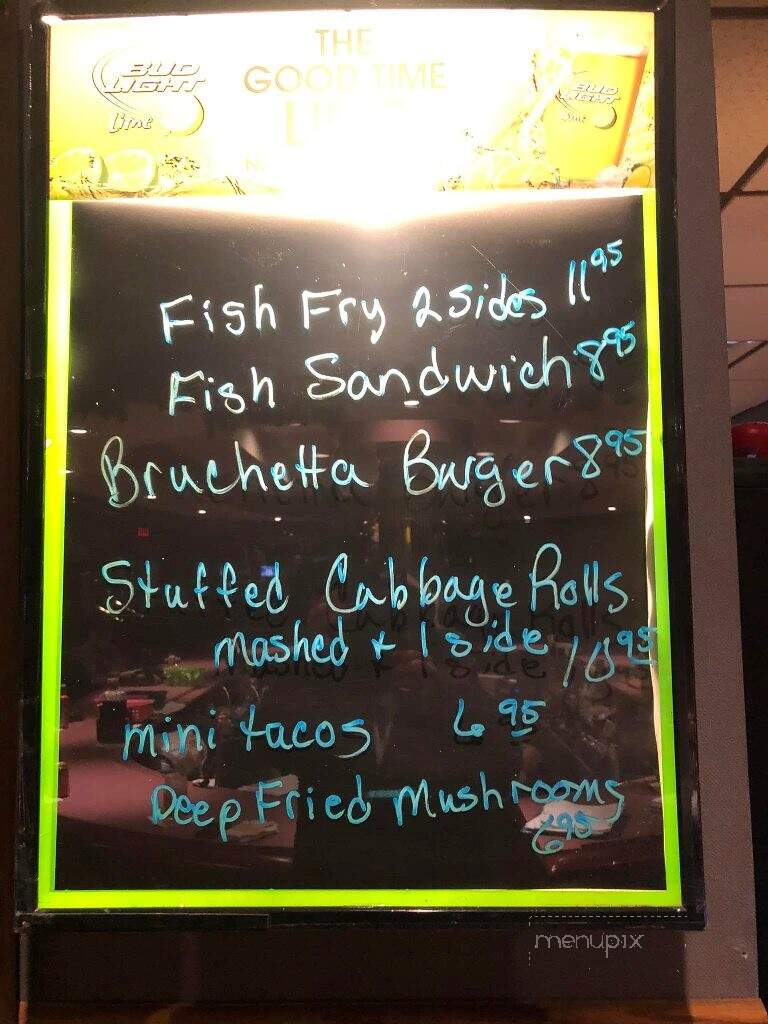 BUD LIGHT
Lime
THE
GOOD TIME
BUD LIGHT
Lime
Fish Fry 2 sides 11 95
Fish Sandwich 8 95
Bruchetta Burger 8 95
Stuffed Cabbage Rolls
mashed + 1 side 10 95
mini tacos 6 95
Deep Fried Mushrooms
6 95
menupix